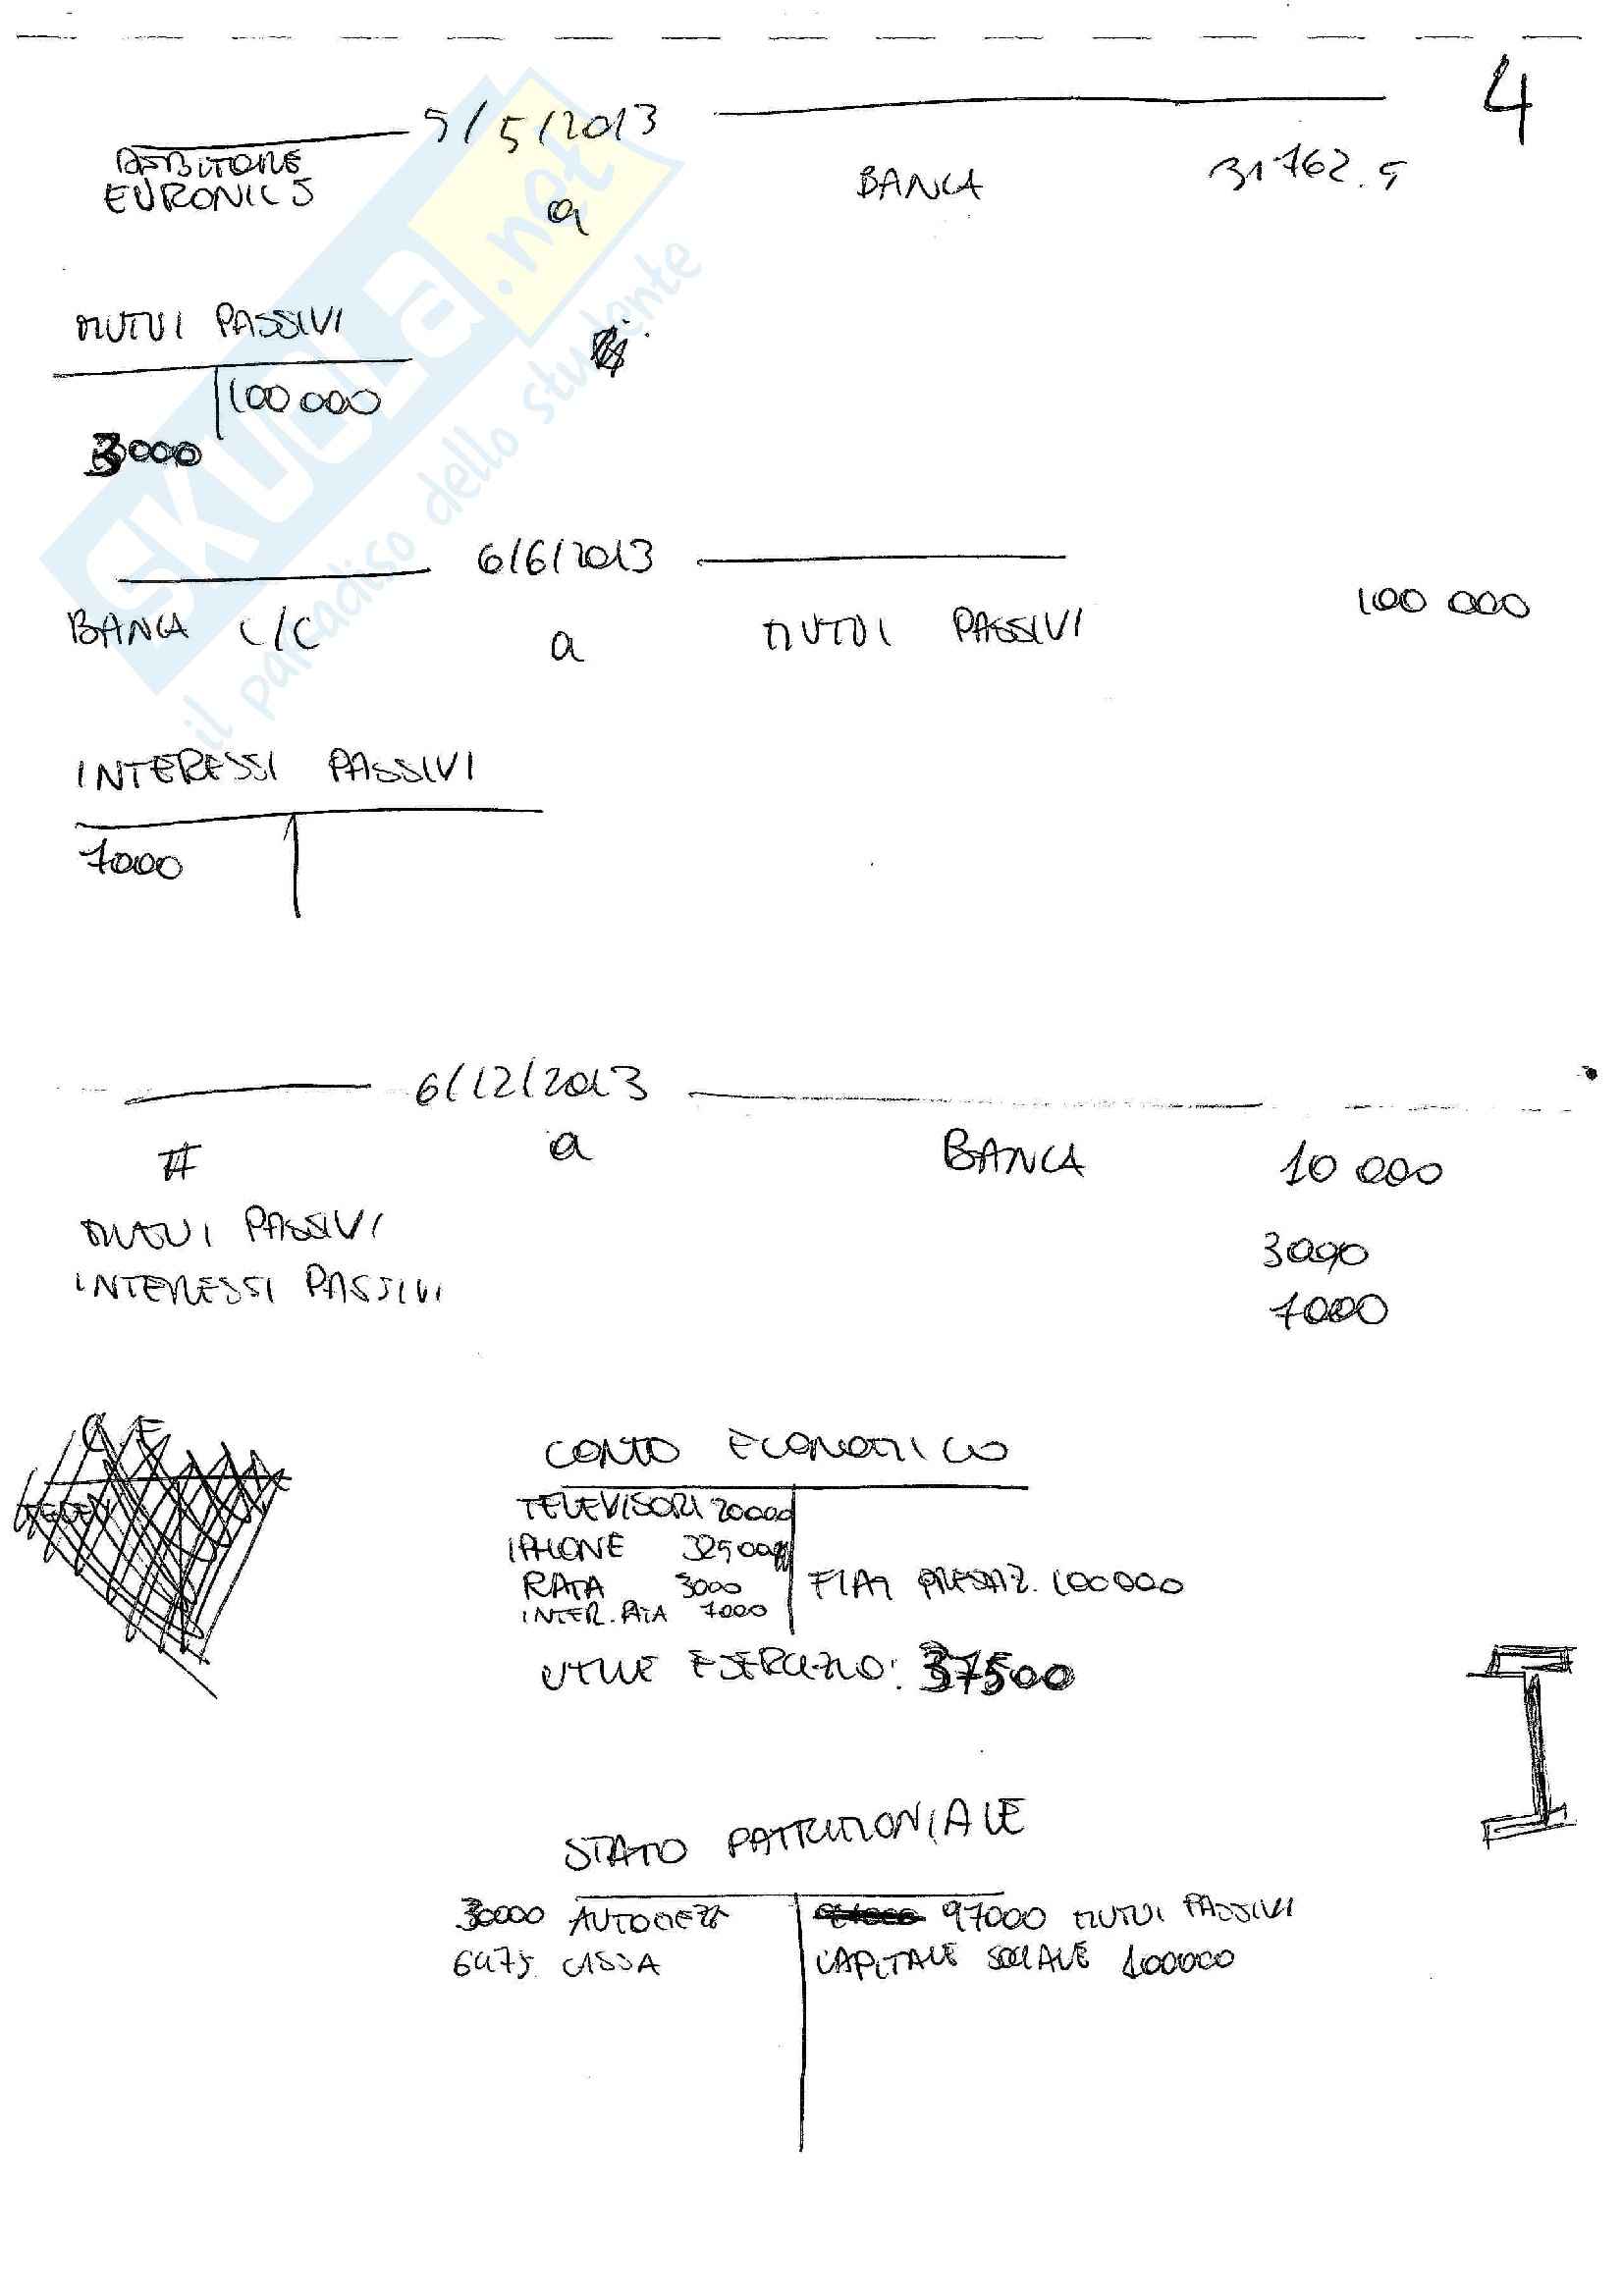 4
5/5/2013
DEBITORE
EURONICS a BANCA 31762.5
MUTUI PASSIVI
100 000
3000
6/6/2013
BANCA C/C a MUTUI PASSIVI 100 000
INTERESSI PASSIVI
7000
6/12/2013
# a BANCA 10 000
MUTUI PASSIVI 3000
INTERESSI PASSIVI 7000
CONTO ECONOMICO
TELEVISORI 20000
IPHONE 32500
RATA 3000 FIAT PRESTAZ. 100000
INTER. RATA 7000
UTILE ESERCIZIO: 37500
STATO PATRIMONIALE
30000 AUTOMEZZI 97000 MUTUI PASSIVI
6475 CASSA CAPITALE SOCIALE 100000
SKUOLA.net
il paradiso dello studente